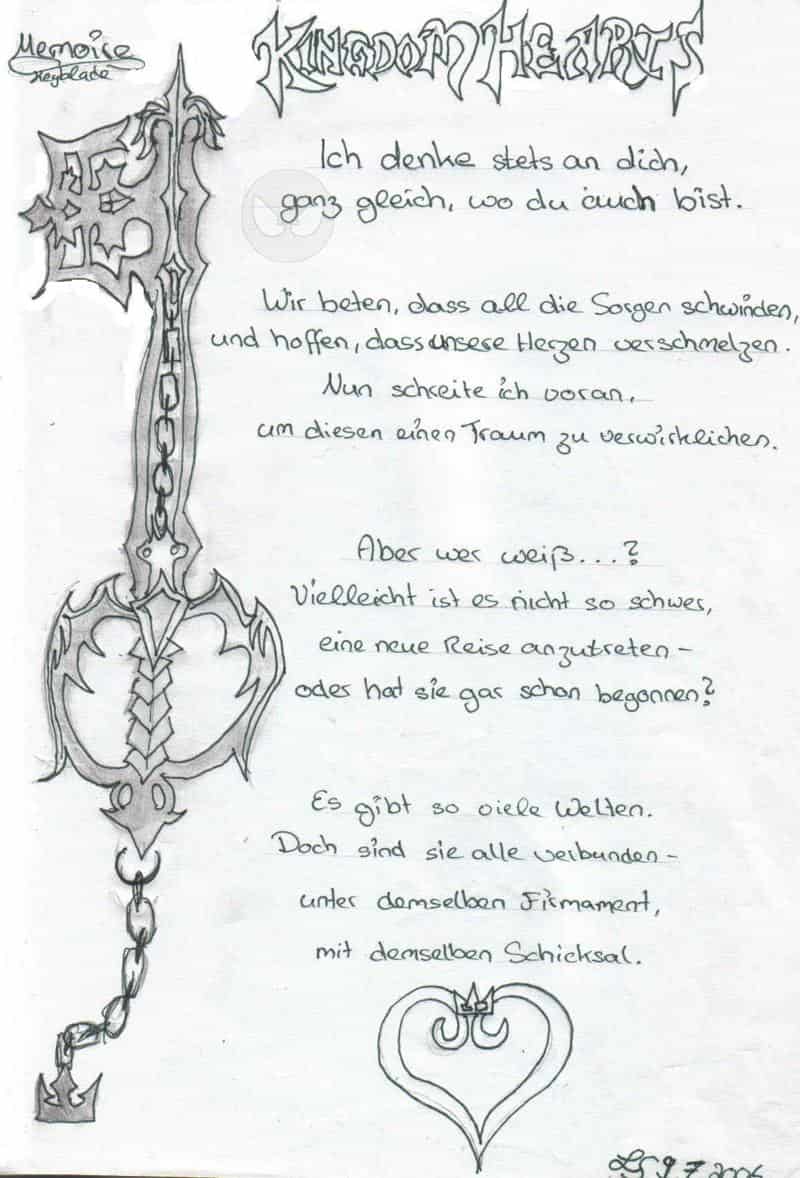 Memoire
Keyblade
KINGDOM HEARTS
Ich denke stets an dich,
ganz gleich, wo du auch bist.
Wir beten, dass all die Sorgen schwinden,
und hoffen, dass unsere Herzen verschmelzen.
Nun schreite ich voran,
um diesen einen Traum zu verwirklichen.
Aber wer weiß...?
Vielleicht ist es nicht so schwer,
eine neue Reise anzutreten –
oder hat sie gar schon begonnen?
Es gibt so viele Welten.
Doch sind sie alle verbunden –
unter demselben Firmament,
mit demselben Schicksal.
9.7.2006